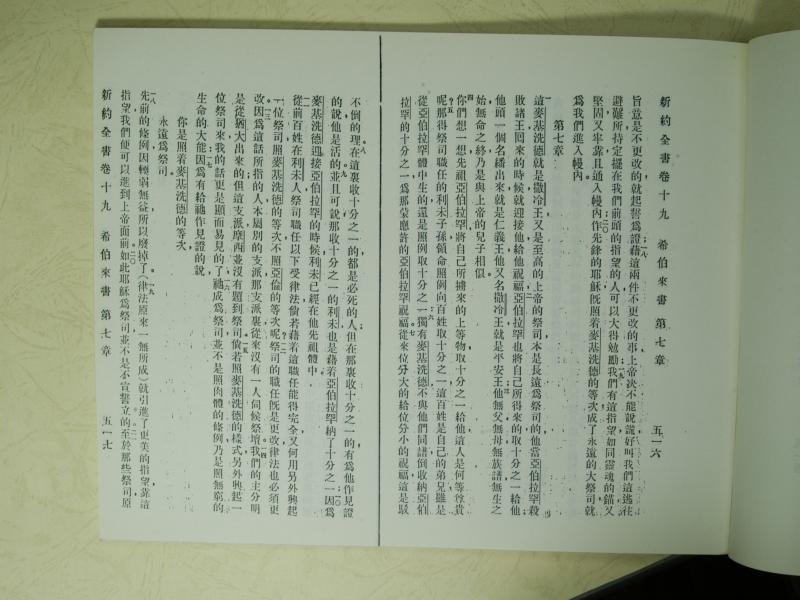 新約全書卷十九 希伯來書 第七章 五一六
旨意是不更改的就起誓爲證藉這兩件不更改的事上帝決不能說謊好叫我們這逃往
避難所持定擺在我們前頭的指望的人可以大得勉勵我們有這指望如同靈魂的錨又
堅固又牢靠且通入幔內作先鋒的耶穌既照着麥基洗德的等次成了永遠的大祭司就
爲我們進入幔內
第七章
這麥基洗德就是撒冷王又是至高的上帝的祭司本是長遠爲祭司的他當亞伯拉罕殺
敗諸王回來的時候就迎接他給他祝福亞伯拉罕也將自己所得來的取十分之一給他
他頭一個名繙出來就是仁義王他又名撒冷王就是平安王他無父無母無族譜無生之
始無命之終乃是與上帝的兒子相似
你們想一想先祖亞伯拉罕將自己所擄來的上等物取十分之一給他這人是何等尊貴
呢那得祭司職任的利未子孫領命照例向百姓取十分之一這百姓是自己的弟兄雖是
從亞伯拉罕體中生的還是照例取十分之一獨有麥基洗德不與他們同譜倒收納亞伯
拉罕的十分之一爲那蒙應許的亞伯拉罕祝福從來位分大的給位分小的祝福這是駁
不倒的理在這裏收十分之一的都是必死的人但在那裏收十分之一的有爲他作見證
的說他是活的並且可說那收十分之一的利未也是藉着亞伯拉罕納了十分之一因爲
麥基洗德迎接亞伯拉罕的時候利未已經在他先祖體中
從前百姓在利未人祭司職任以下受律法倘若藉着這職任能得完全又何用另外興起
一位祭司照麥基洗德的等次不照亞倫的等次呢祭司的職任既是更改律法也必須更
改因爲這話所指的人本屬別的支派那支派裏從來沒有一人伺候祭壇我們的主分明
是從猶大出來的但這支派摩西並沒有題到祭司倘若照麥基洗德的樣式另外興起一
位祭司來我的話更是顯而易見的了祂成爲祭司並不是照肉體的條例乃是照無窮的
生命的大能因爲有給祂作見證的說
你是照着麥基洗德的等次
永遠爲祭司
先前的條例因輭弱無益所以廢掉了(律法原來一無所成)就引進了更美的指望靠這
指望我們便可以進到上帝面前如此耶穌爲祭司並不是不宣誓立的至於那些祭司原
新約全書卷十九 希伯來書 第七章 五一七